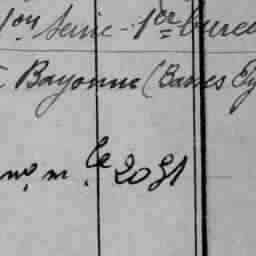 on Seine - 1er bureau
Bayonne (Basses Py
no m le 2051